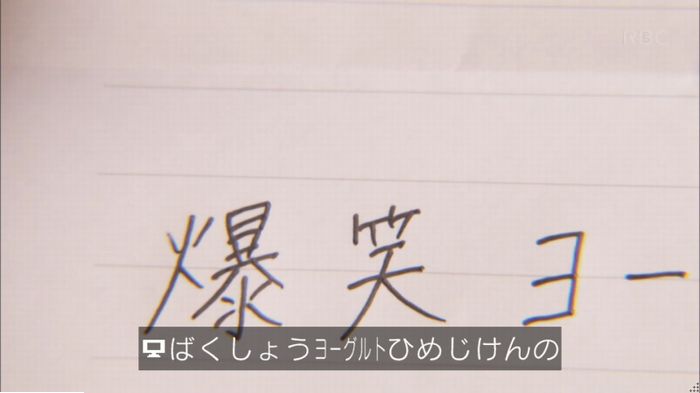 RBC
爆笑ヨー
ばくしょうﾖｰｸﾞﾙﾄひめじけんの